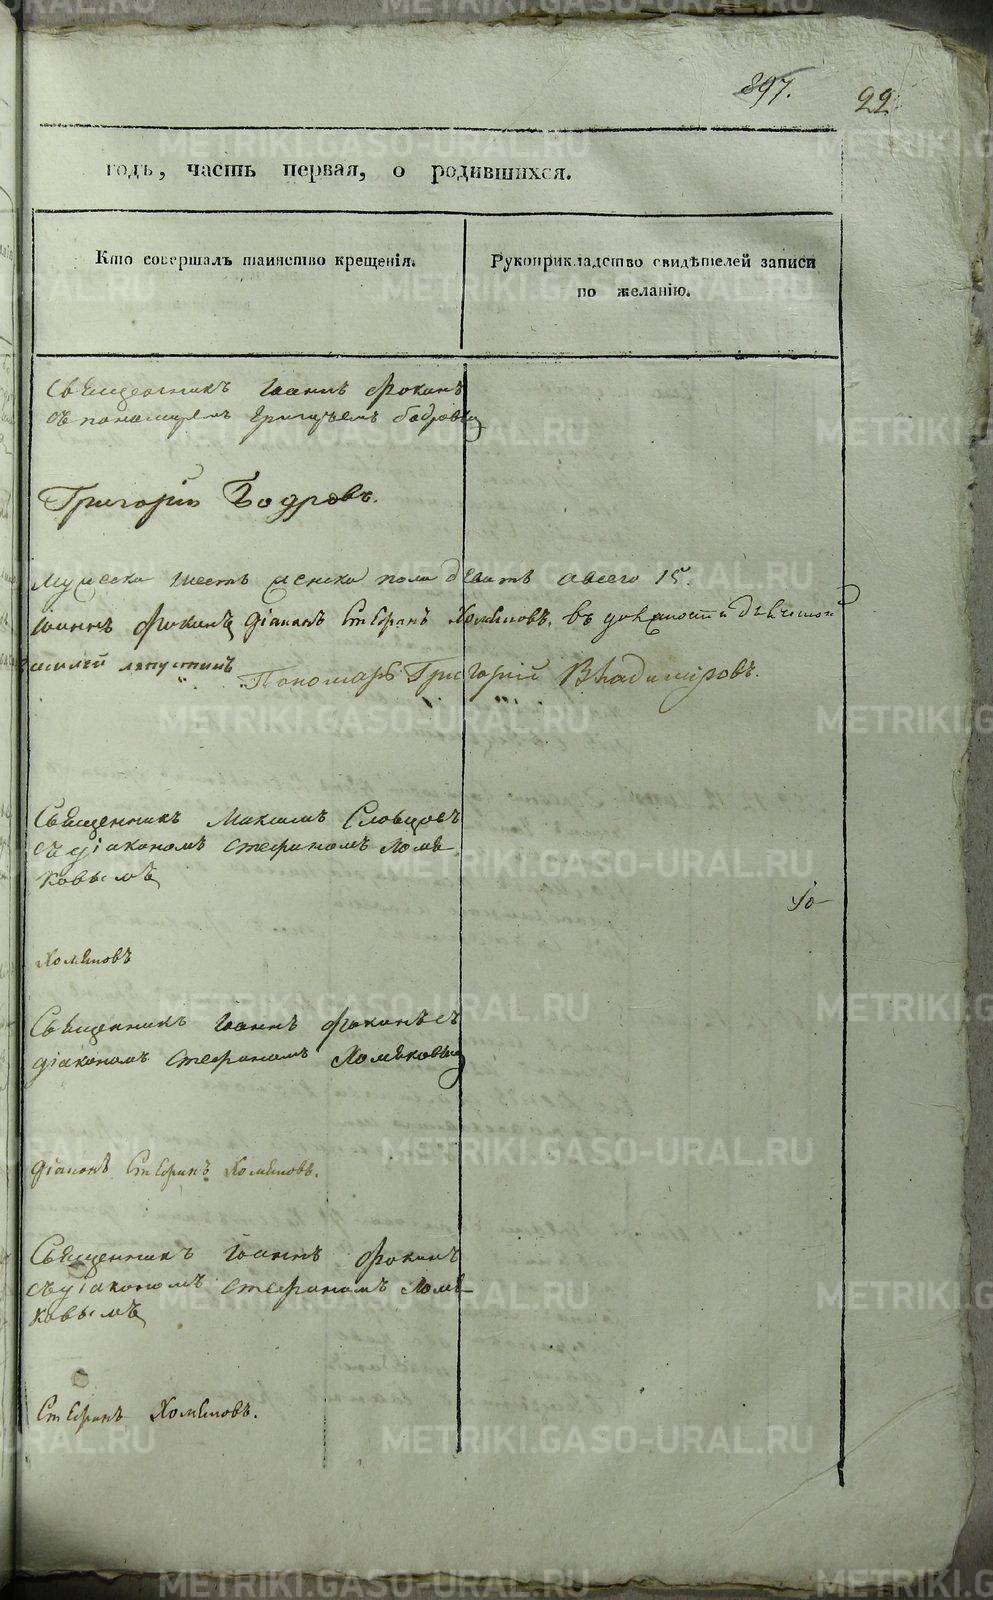 897.
22
годъ, часть первая, о родившихся.
Кто совершалъ таинство крещенія.
Рукоприкладство свидѣтелей записи
по желанію.
Священникъ Іоаннъ Фокинъ
съ пономаремъ Григорьемъ Бодровы
Григорій Бодровъ.
Мужеска шесть женска пола девять а всего 15.
Іоаннъ Фокинъ діаконъ Стефанъ Хомяковъ, въ должности
Пономарь Григорій Владимировъ.
Священникъ Максимъ Словцовъ
съ діакономъ Стефаномъ Хомя
ковымъ
Хомяковъ
Священникъ Іоаннъ Фокинъ съ
діакономъ Стефаномъ Хомяковы
діаконъ Стефанъ Хомяковъ.
Священникъ Іоаннъ Фокинъ
съ діакономъ Стефаномъ Хомя
ковымъ
Стефанъ Хомяковъ.
METRIKI.GASO-URAL.RU